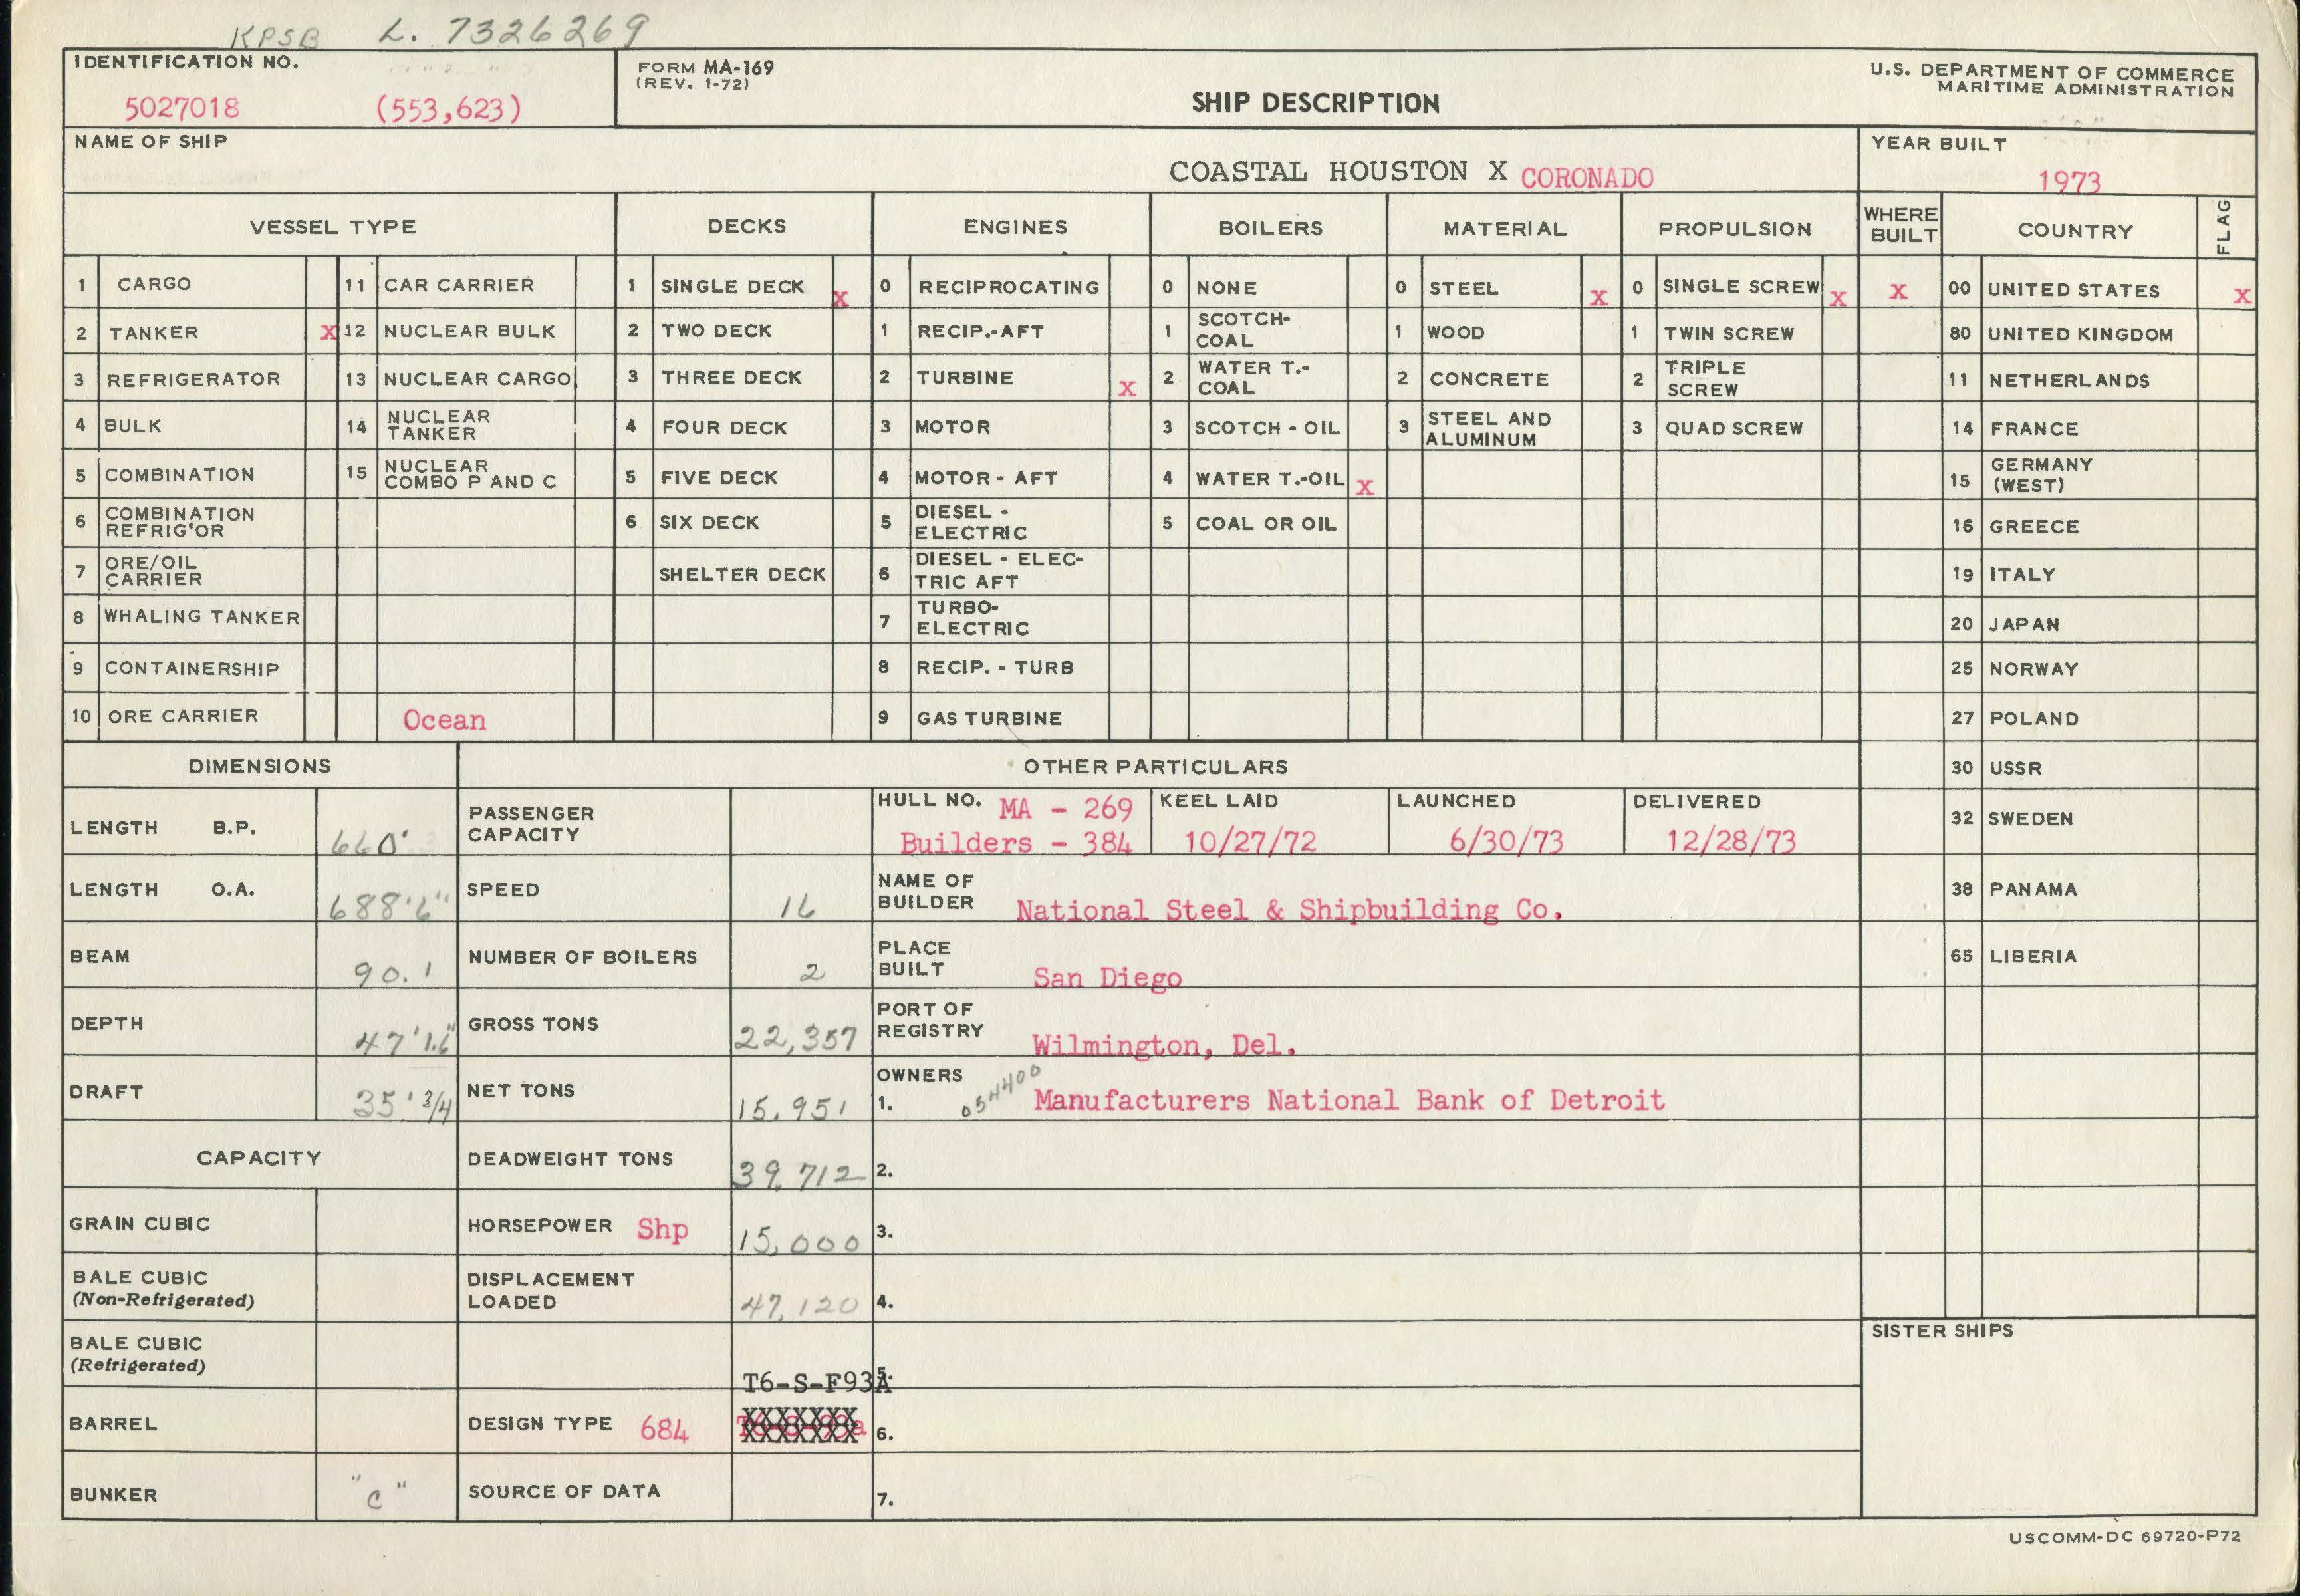 KPSB L. 7326269
IDENTIFICATION NO.
5027018 (553,623)
FORM MA-169
(REV. 1-72)
SHIP DESCRIPTION
U.S. DEPARTMENT OF COMMERCE
MARITIME ADMINISTRATION
NAME OF SHIP
COASTAL HOUSTON X CORONADO
YEAR BUILT
1973
VESSEL TYPE DECKS ENGINES BOILERS MATERIAL PROPULSION WHERE BUILT COUNTRY FLAG
1 CARGO 11 CAR CARRIER 1 SINGLE DECK X 0 RECIPROCATING 0 NONE 0 STEEL X 0 SINGLE SCREW X X 00 UNITED STATES X
2 TANKER X 12 NUCLEAR BULK 2 TWO DECK 1 RECIP.-AFT 1 SCOTCH-COAL 1 WOOD 1 TWIN SCREW 80 UNITED KINGDOM
3 REFRIGERATOR 13 NUCLEAR CARGO 3 THREE DECK 2 TURBINE X 2 WATER T.-COAL 2 CONCRETE 2 TRIPLE SCREW 11 NETHERLANDS
4 BULK 14 NUCLEAR TANKER 4 FOUR DECK 3 MOTOR 3 SCOTCH - OIL 3 STEEL AND ALUMINUM 3 QUAD SCREW 14 FRANCE
5 COMBINATION 15 NUCLEAR COMBO P AND C 5 FIVE DECK 4 MOTOR - AFT 4 WATER T.-OIL X 15 GERMANY (WEST)
6 COMBINATION REFRIG'OR 6 SIX DECK 5 DIESEL - ELECTRIC 5 COAL OR OIL 16 GREECE
7 ORE/OIL CARRIER SHELTER DECK 6 DIESEL - ELEC-TRIC AFT 19 ITALY
8 WHALING TANKER 7 TURBO-ELECTRIC 20 JAPAN
9 CONTAINERSHIP 8 RECIP. - TURB 25 NORWAY
10 ORE CARRIER Ocean 9 GAS TURBINE 27 POLAND
DIMENSIONS OTHER PARTICULARS 30 USSR
LENGTH B.P. 660' PASSENGER CAPACITY HULL NO. MA - 269 Builders - 384 KEEL LAID 10/27/72 LAUNCHED 6/30/73 DELIVERED 12/28/73 32 SWEDEN
LENGTH O.A. 688'6" SPEED 16 NAME OF BUILDER National Steel & Shipbuilding Co. 38 PANAMA
BEAM 90.1 NUMBER OF BOILERS 2 PLACE BUILT San Diego 65 LIBERIA
DEPTH 47'1.6" GROSS TONS 22,357 PORT OF REGISTRY Wilmington, Del.
DRAFT 35'3/4 NET TONS 15,951 OWNERS 1. 054400 Manufacturers National Bank of Detroit
CAPACITY DEADWEIGHT TONS 39,712 2.
GRAIN CUBIC HORSEPOWER Shp 15,000 3.
BALE CUBIC (Non-Refrigerated) DISPLACEMENT LOADED 47,120 4.
BALE CUBIC (Refrigerated) T6-S-F93A 5. SISTER SHIPS
BARREL DESIGN TYPE 684 6.
BUNKER "C" SOURCE OF DATA 7.
USCOMM-DC 69720-P72